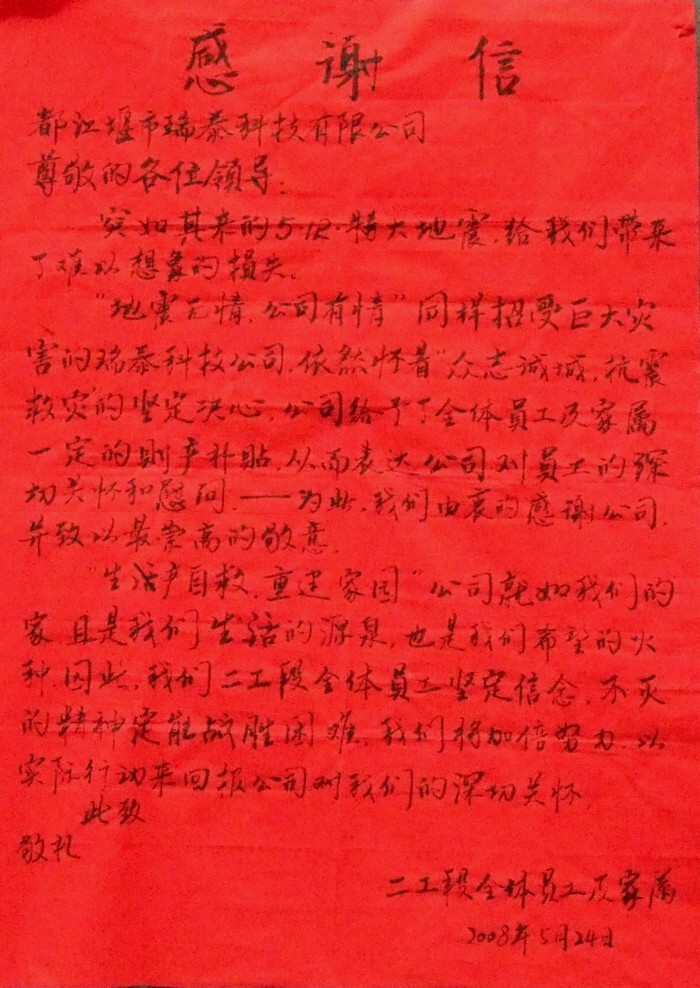 感谢信
都江堰市瑞泰科技有限公司
尊敬的各位領导:
突如其来的5·12·特大地震,给我们带来
了难以想象的损失。
"地震无情,公司有情"同样招受巨大灾
害的瑞泰科技公司,依然怀着"众志诚城,抗震
救灾"的坚定决心,公司给予了全体员工及家属
一定的财产补贴,从而表达公司对员工的深
切关怀和慰问,——为此,我们由衷的感谢公司,
并致以最崇高的敬意。
"生活产自救,重建家园"公司就如我们的
家且是我们生活的源泉,也是我们希望的火
种,因此,我们二工段全体员工坚定信念,不灭
的精神定能战胜困难,我们将加倍努力,以
实际行动来回报公司对我们的深切关怀。
此致
敬礼
二工段全体员工及家属
2008年5月24日